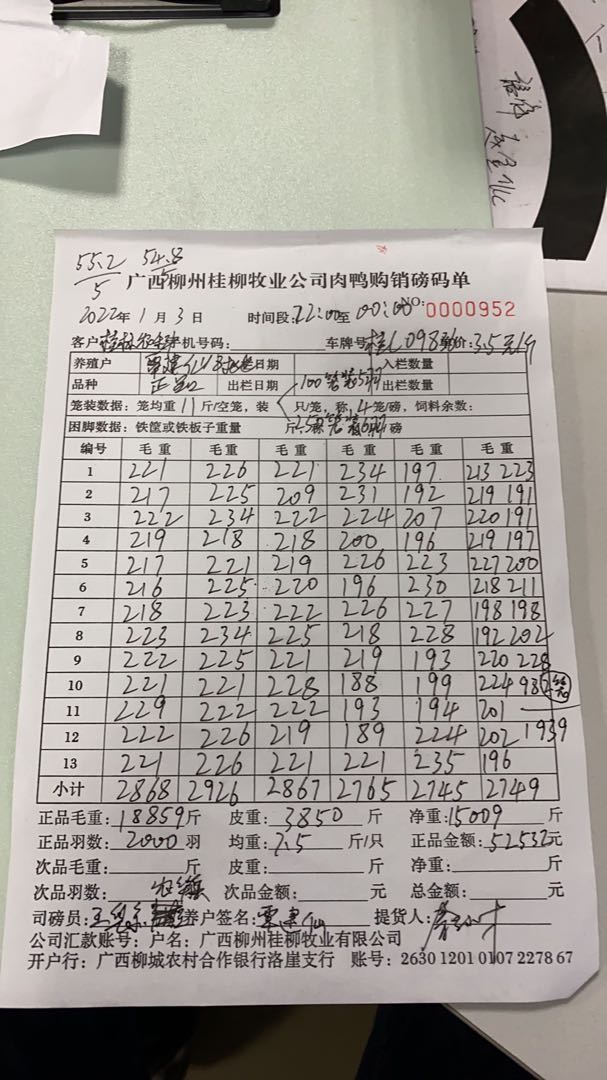 55.2 54.8
5 5
广西柳州桂柳牧业公司肉鸭购销磅码单
2022年1月3日 时间段:22:00至00:00 NO: 0000952
客户: 手机号码: 车牌号: 桂 098 单价: 3.5元/斤
养殖户 日期 入栏数量
品种 出栏日期 100笼装5羽 出栏数量
笼装数据: 笼均重11斤/空笼, 装 只/笼, 称4笼/磅, 饲料余数:
困脚数据: 铁筐或铁板子重量 斤 250笼装6羽 磅
编号 毛重 毛重 毛重 毛重 毛重 毛重
1 221 226 221 234 197 213 223
2 217 225 209 231 192 219 191
3 222 234 222 224 207 220 191
4 219 218 218 200 196 219 197
5 217 221 219 226 223 227 200
6 216 225 220 196 230 218 211
7 218 223 222 226 227 198 198
8 223 234 225 218 228 192 202
9 222 225 221 219 193 220 228
10 221 221 228 188 199 224 98 2笼
11 229 222 222 193 194 201
12 222 226 219 189 224 202 1939
13 221 226 221 221 235 196
小计 2868 2926 2867 2765 2745 2749
正品毛重: 18859斤 皮重: 3850斤 净重: 15009斤
正品羽数: 2000羽 均重: 7.5斤/只 正品金额: 52532元
次品毛重: 斤 皮重: 斤 净重: 斤
次品羽数: 次品金额: 元 总金额: 元
司磅员: 养户签名: 覃建仙 提货人:
公司汇款账号: 户名: 广西柳州桂柳牧业有限公司
开户行: 广西柳城农村合作银行洛崖支行 账号: 2630 1201 0107 2278 67